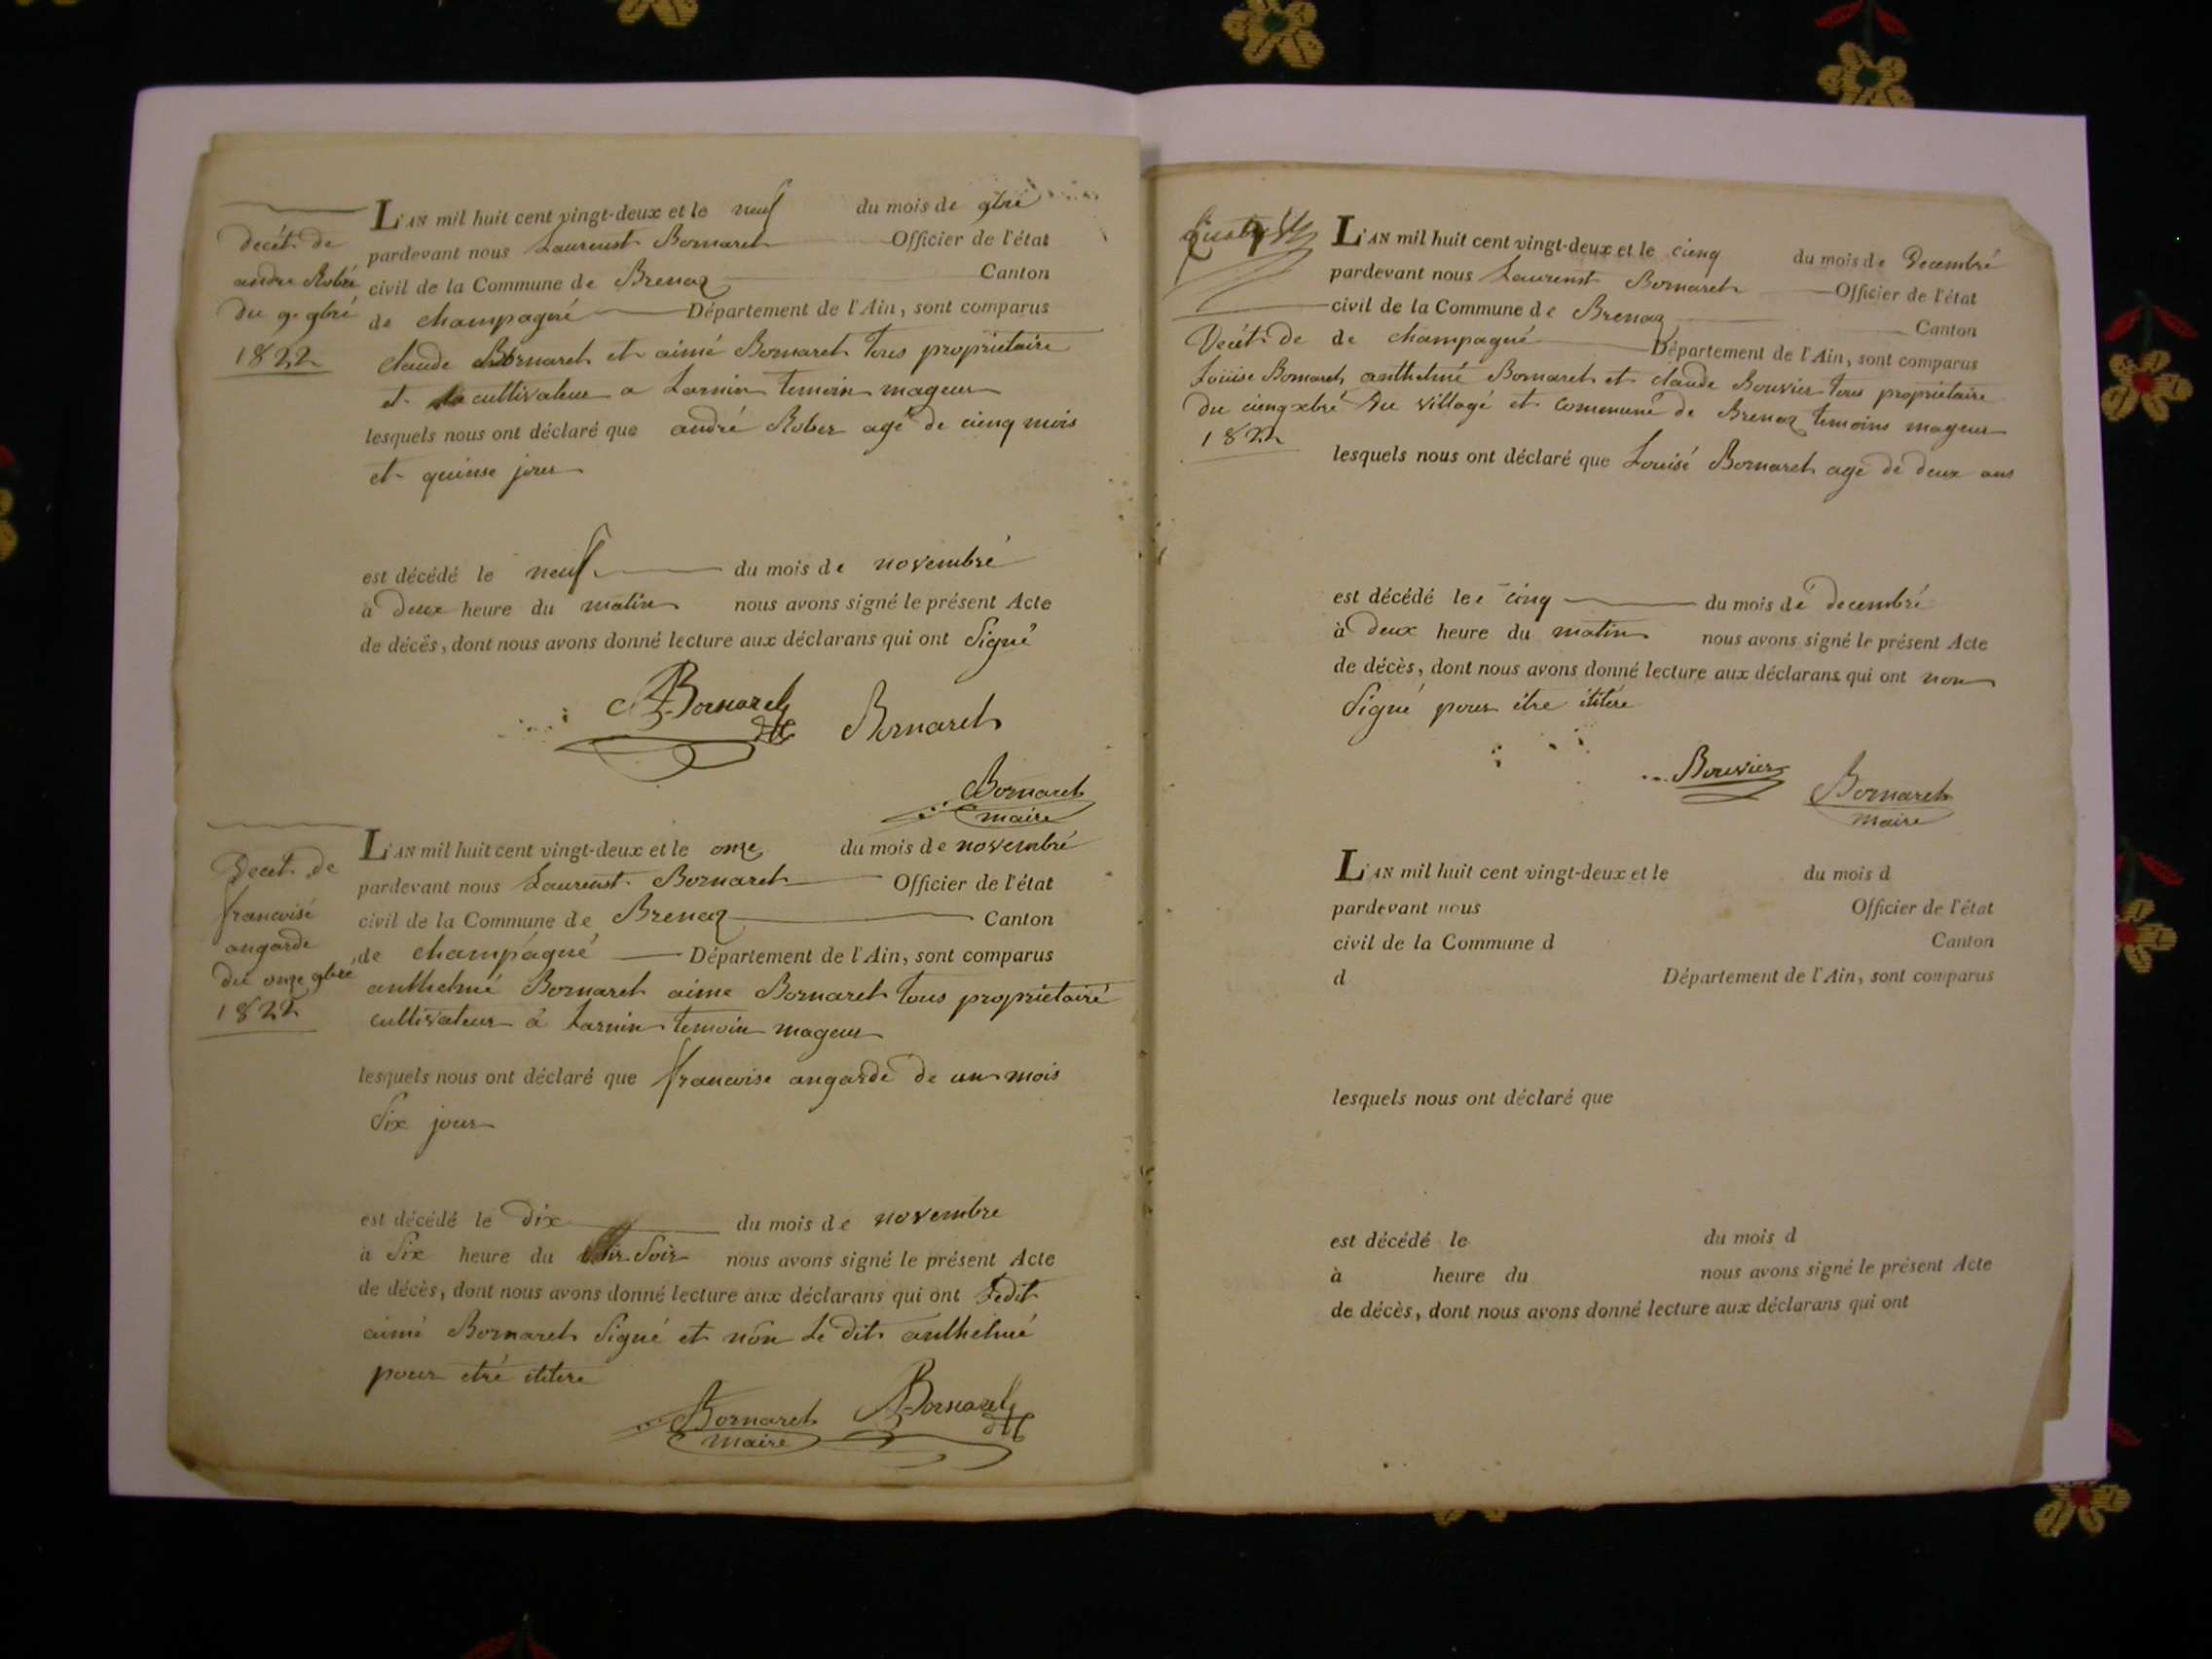 L'AN mil huit cent vingt-deux et le neuf du mois de 9bre
pardevant nous Laurenst Bornaret Officier de l'état
civil de la Commune de Brenaz Canton
de champagné Département de l'Ain, sont comparus
claude Bornaret et aimé Bornaret tous proprietaire
et cultivateur a Larnin temoin mageur
lesquels nous ont déclaré que andré Rober agé de cienq mois
et quinse jour
est décédé le neuf du mois de novembré
à deux heure du matin nous avons signé le présent Acte
de décès, dont nous avons donné lecture aux déclarans qui ont Signé
Decét de
andre Robér
du 9 9bré
1822
ABornaret
Bornaret
Bornaret
maire
L'AN mil huit cent vingt-deux et le onze du mois de novembré
pardevant nous Laurenst Bornaret Officier de l'état
civil de la Commune de Brenaz Canton
de champagné Département de l'Ain, sont comparus
anthelmé Bornaret aime Bornaret tous proprietairé
cultivateur a Larnin temoin mageur
lesquels nous ont déclaré que francoise angarde de un mois
Six jour
est décédé le dix du mois de novembre
à Six heure du Soir nous avons signé le présent Acte
de décès, dont nous avons donné lecture aux déclarans qui ont Ledit
aimé Bornaret Signé et non Le dit anthelmé
pour etré ititere
Decét de
francoisé
angarde
du onze 9bré
1822
Bornaret
maire
ABornaret
L'AN mil huit cent vingt-deux et le cienq du mois de Decembré
pardevant nous Laurenst Bornaret Officier de l'état
civil de la Commune de Brenaz Canton
de champagné Département de l'Ain, sont comparus
anthelmé Bornaret et claude Bouvier tous proprietaire
du villagé et communé de Brenaz temoins mageur
lesquels nous ont déclaré que Louisé Bornaret agé de deux ans
est décédé le cinq du mois de decembré
à deux heure du matin nous avons signé le présent Acte
de décès, dont nous avons donné lecture aux déclarans qui ont non
Signé pour être ititére
Decét de
Louise Bornaret
du cienq xbré
1822
Bouvier
Bornaret
maire
L'AN mil huit cent vingt-deux et le du mois d
pardevant nous Officier de l'état
civil de la Commune d Canton
d Département de l'Ain, sont comparus
lesquels nous ont déclaré que
est décédé le du mois d
à heure du nous avons signé le présent Acte
de décès, dont nous avons donné lecture aux déclarans qui ont